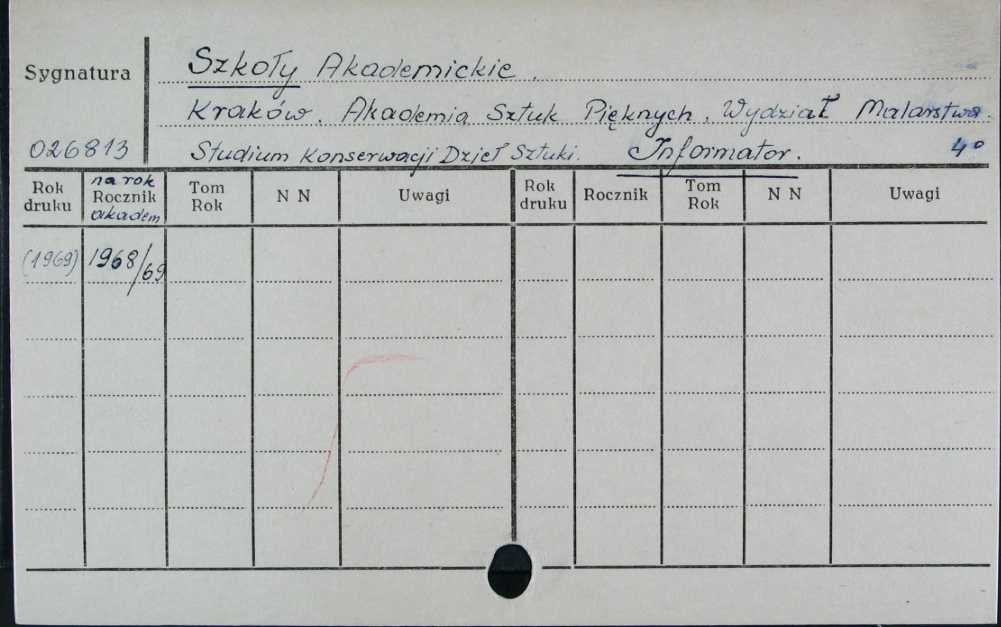 Sygnatura
Szkoły Akademickie.
Kraków. Akademia Sztuk Pięknych. Wydział Malarstwa.
026813 Studium Konserwacji Dzieł Sztuki. Informator. 4°
Rok druku na rok Rocznik akadem Tom Rok N N Uwagi Rok druku Rocznik Tom Rok N N Uwagi
(1969) 1968/69